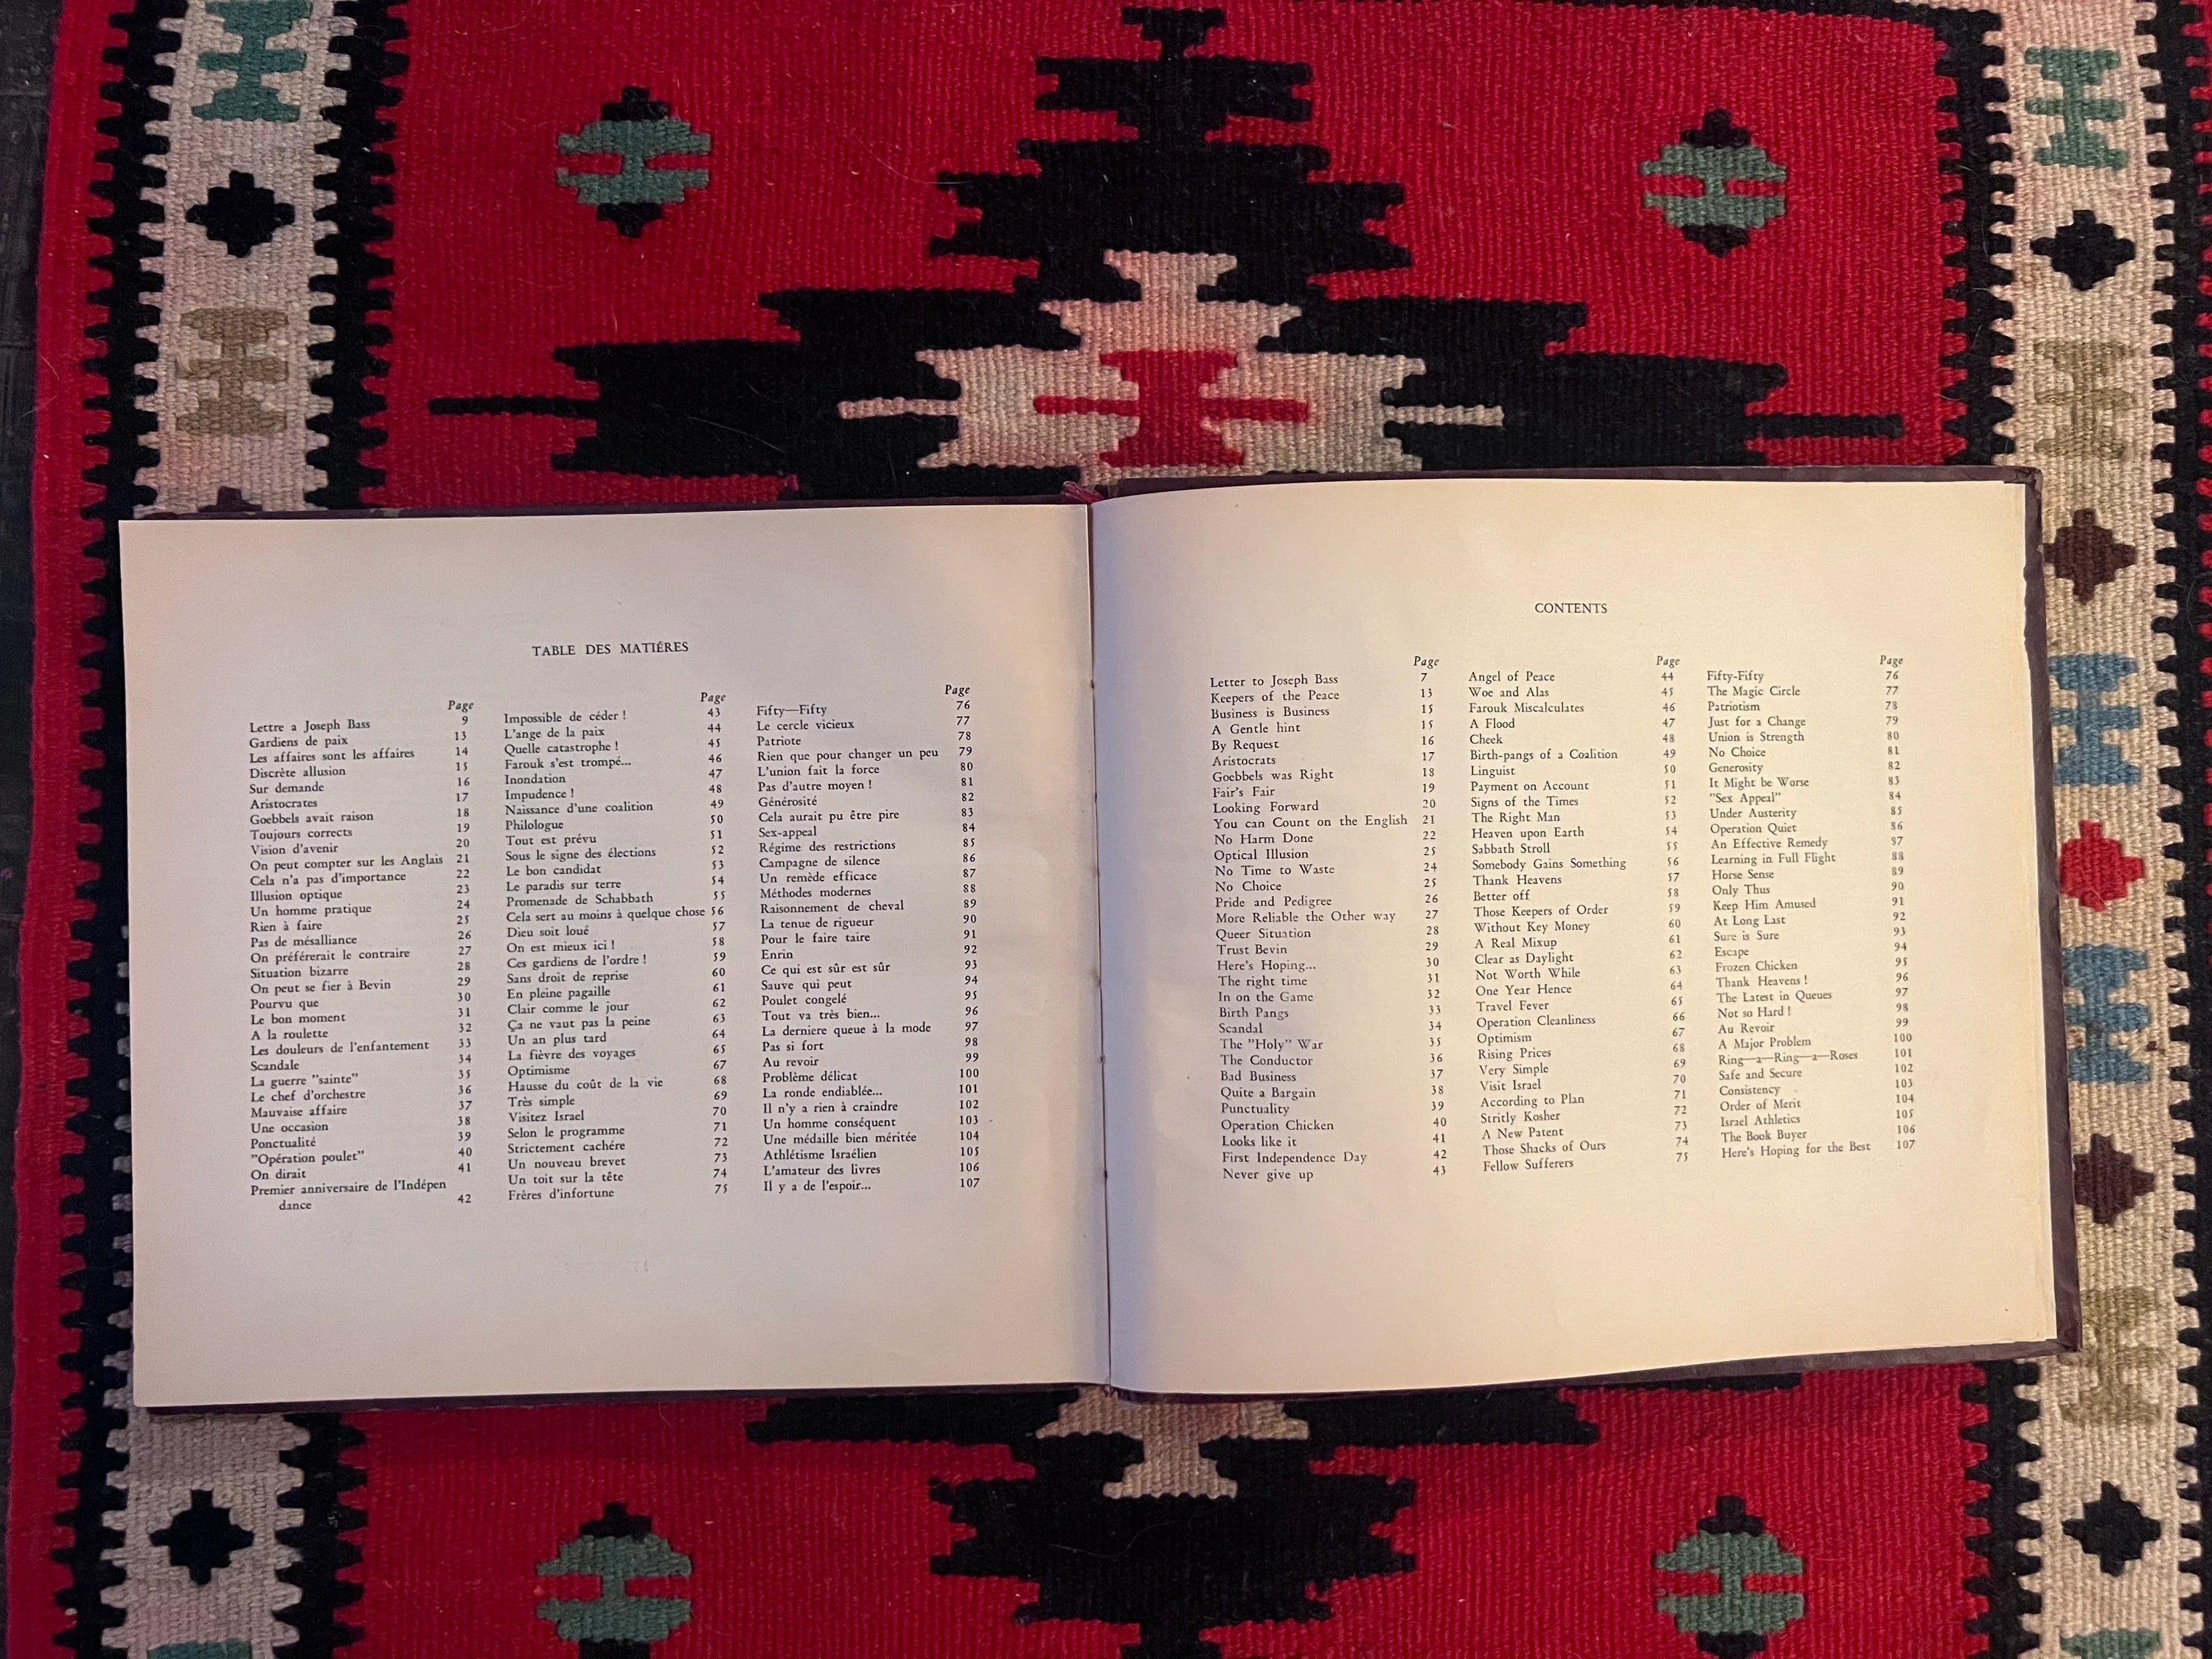 TABLE DES MATIÉRES
Page
Lettre a Joseph Bass 9
Gardiens de paix 13
Les affaires sont les affaires 14
Discrète allusion 15
Sur demande 16
Aristocrates 17
Goebbels avait raison 18
Toujours corrects 19
Vision d'avenir 20
On peut compter sur les Anglais 21
Cela n'a pas d'importance 22
Illusion optique 23
Un homme pratique 24
Rien à faire 25
Pas de mésalliance 26
On préférerait le contraire 27
Situation bizarre 28
On peut se fier à Bevin 29
Pourvu que 30
Le bon moment 31
A la roulette 32
Les douleurs de l'enfantement 33
Scandale 34
La guerre "sainte" 35
Le chef d'orchestre 36
Mauvaise affaire 37
Une occasion 38
Ponctualité 39
"Opération poulet" 40
On dirait 41
Premier anniversaire de l'Indépen
dance 42
Page
Impossible de céder ! 43
L'ange de la paix 44
Quelle catastrophe ! 45
Farouk s'est trompé... 46
Inondation 47
Impudence ! 48
Naissance d'une coalition 49
Philologue 50
Tout est prévu 51
Sous le signe des élections 52
Le bon candidat 53
Le paradis sur terre 54
Promenade de Schabbath 55
Cela sert au moins à quelque chose 56
Dieu soit loué 57
On est mieux ici ! 58
Ces gardiens de l'ordre ! 59
Sans droit de reprise 60
En pleine pagaille 61
Clair comme le jour 62
Ça ne vaut pas la peine 63
Un an plus tard 64
La fièvre des voyages 65
Optimisme 67
Hausse du coût de la vie 68
Très simple 69
Visitez Israel 70
Selon le programme 71
Strictement cachére 72
Un nouveau brevet 73
Un toit sur la tête 74
Frères d'infortune 75
Page
Fifty—Fifty 76
Le cercle vicieux 77
Patriote 78
Rien que pour changer un peu 79
L'union fait la force 80
Pas d'autre moyen ! 81
Générosité 82
Cela aurait pu être pire 83
Sex-appeal 84
Régime des restrictions 85
Campagne de silence 86
Un remède efficace 87
Méthodes modernes 88
Raisonnement de cheval 89
La tenue de rigueur 90
Pour le faire taire 91
Enrin 92
Ce qui est sûr est sûr 93
Sauve qui peut 94
Poulet congelé 95
Tout va très bien... 96
La derniere queue à la mode 97
Pas si fort 98
Au revoir 99
Problème délicat 100
La ronde endiablée... 101
Il n'y a rien à craindre 102
Un homme conséquent 103
Une médaille bien méritée 104
Athlétisme Israélien 105
L'amateur des livres 106
Il y a de l'espoir... 107
CONTENTS
Page
Letter to Joseph Bass 7
Keepers of the Peace 13
Business is Business 15
A Gentle hint 15
By Request 16
Aristocrats 17
Goebbels was Right 18
Fair's Fair 19
Looking Forward 20
You can Count on the English 21
No Harm Done 22
Optical Illusion 25
No Time to Waste 24
No Choice 25
Pride and Pedigree 26
More Reliable the Other way 27
Queer Situation 28
Trust Bevin 29
Here's Hoping... 30
The right time 31
In on the Game 32
Birth Pangs 33
Scandal 34
The "Holy" War 35
The Conductor 36
Bad Business 37
Quite a Bargain 38
Punctuality 39
Operation Chicken 40
Looks like it 41
First Independence Day 42
Never give up 43
Page
Angel of Peace 44
Woe and Alas 45
Farouk Miscalculates 46
A Flood 47
Cheek 48
Birth-pangs of a Coalition 49
Linguist 50
Payment on Account 51
Signs of the Times 52
The Right Man 53
Heaven upon Earth 54
Sabbath Stroll 55
Somebody Gains Something 56
Thank Heavens 57
Better off 58
Those Keepers of Order 59
Without Key Money 60
A Real Mixup 61
Clear as Daylight 62
Not Worth While 63
One Year Hence 64
Travel Fever 65
Operation Cleanliness 66
Optimism 67
Rising Prices 68
Very Simple 69
Visit Israel 70
According to Plan 71
Stritly Kosher 72
A New Patent 73
Those Shacks of Ours 74
Fellow Sufferers 75
Page
Fifty-Fifty 76
The Magic Circle 77
Patriotism 78
Just for a Change 79
Union is Strength 80
No Choice 81
Generosity 82
It Might be Worse 83
"Sex Appeal" 84
Under Austerity 85
Operation Quiet 86
An Effective Remedy 87
Learning in Full Flight 88
Horse Sense 89
Only Thus 90
Keep Him Amused 91
At Long Last 92
Sure is Sure 93
Escape 94
Frozen Chicken 95
Thank Heavens ! 96
The Latest in Queues 97
Not so Hard ! 98
Au Revoir 99
A Major Problem 100
Ring—a—Ring—a—Roses 101
Safe and Secure 102
Consistency 103
Order of Merit 104
Israel Athletics 105
The Book Buyer 106
Here's Hoping for the Best 107